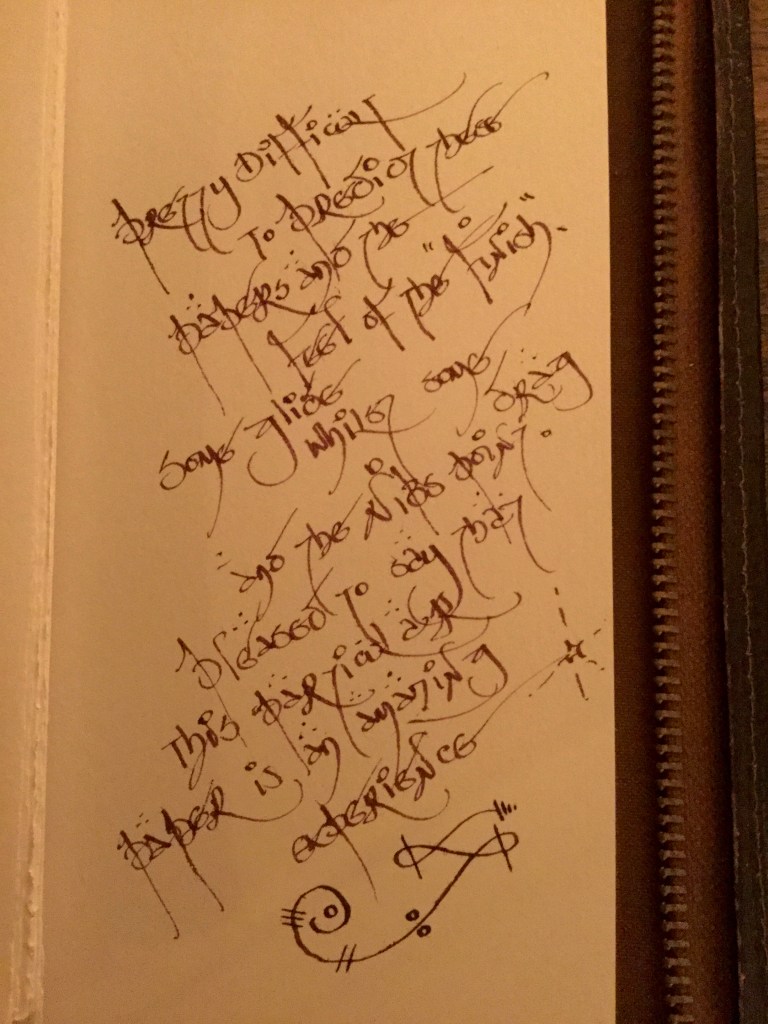 Pretty Difficult
to predict these
papers and the
feel of the "finish".
some glide
whilst some drag
and the nibs point.
Pleased to say that
this particular
paper is an amazing
experience